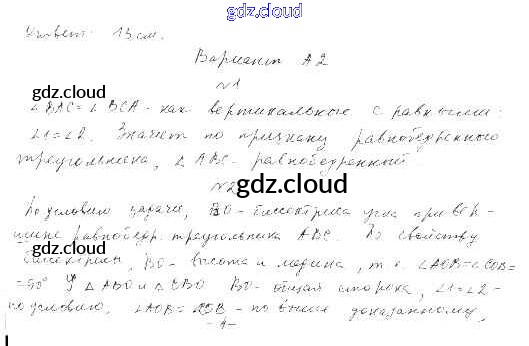 gdz.cloud
Ответ: 13 см.
Вариант А2
№1
∠BAC=∠BCA - как вертикальные с равными:
gdz.cloud
∠1=∠2. Значит по признаку равнобедренного
треугольника, △ABC - равнобедренный
gdz.cloud
№2
По условию задачи, BO - биссектриса угла при вер-
шине равнобедр. треугольника ABC. По свойству
gdz.cloud
биссектрисы, BO - высота и медиана, т.е. ∠AOB=∠COB=
=90° У △ABO и △CBO BO - общая сторона, ∠1=∠2 -
по условию, ∠AOB=∠COB - по выше доказанному,
-1-